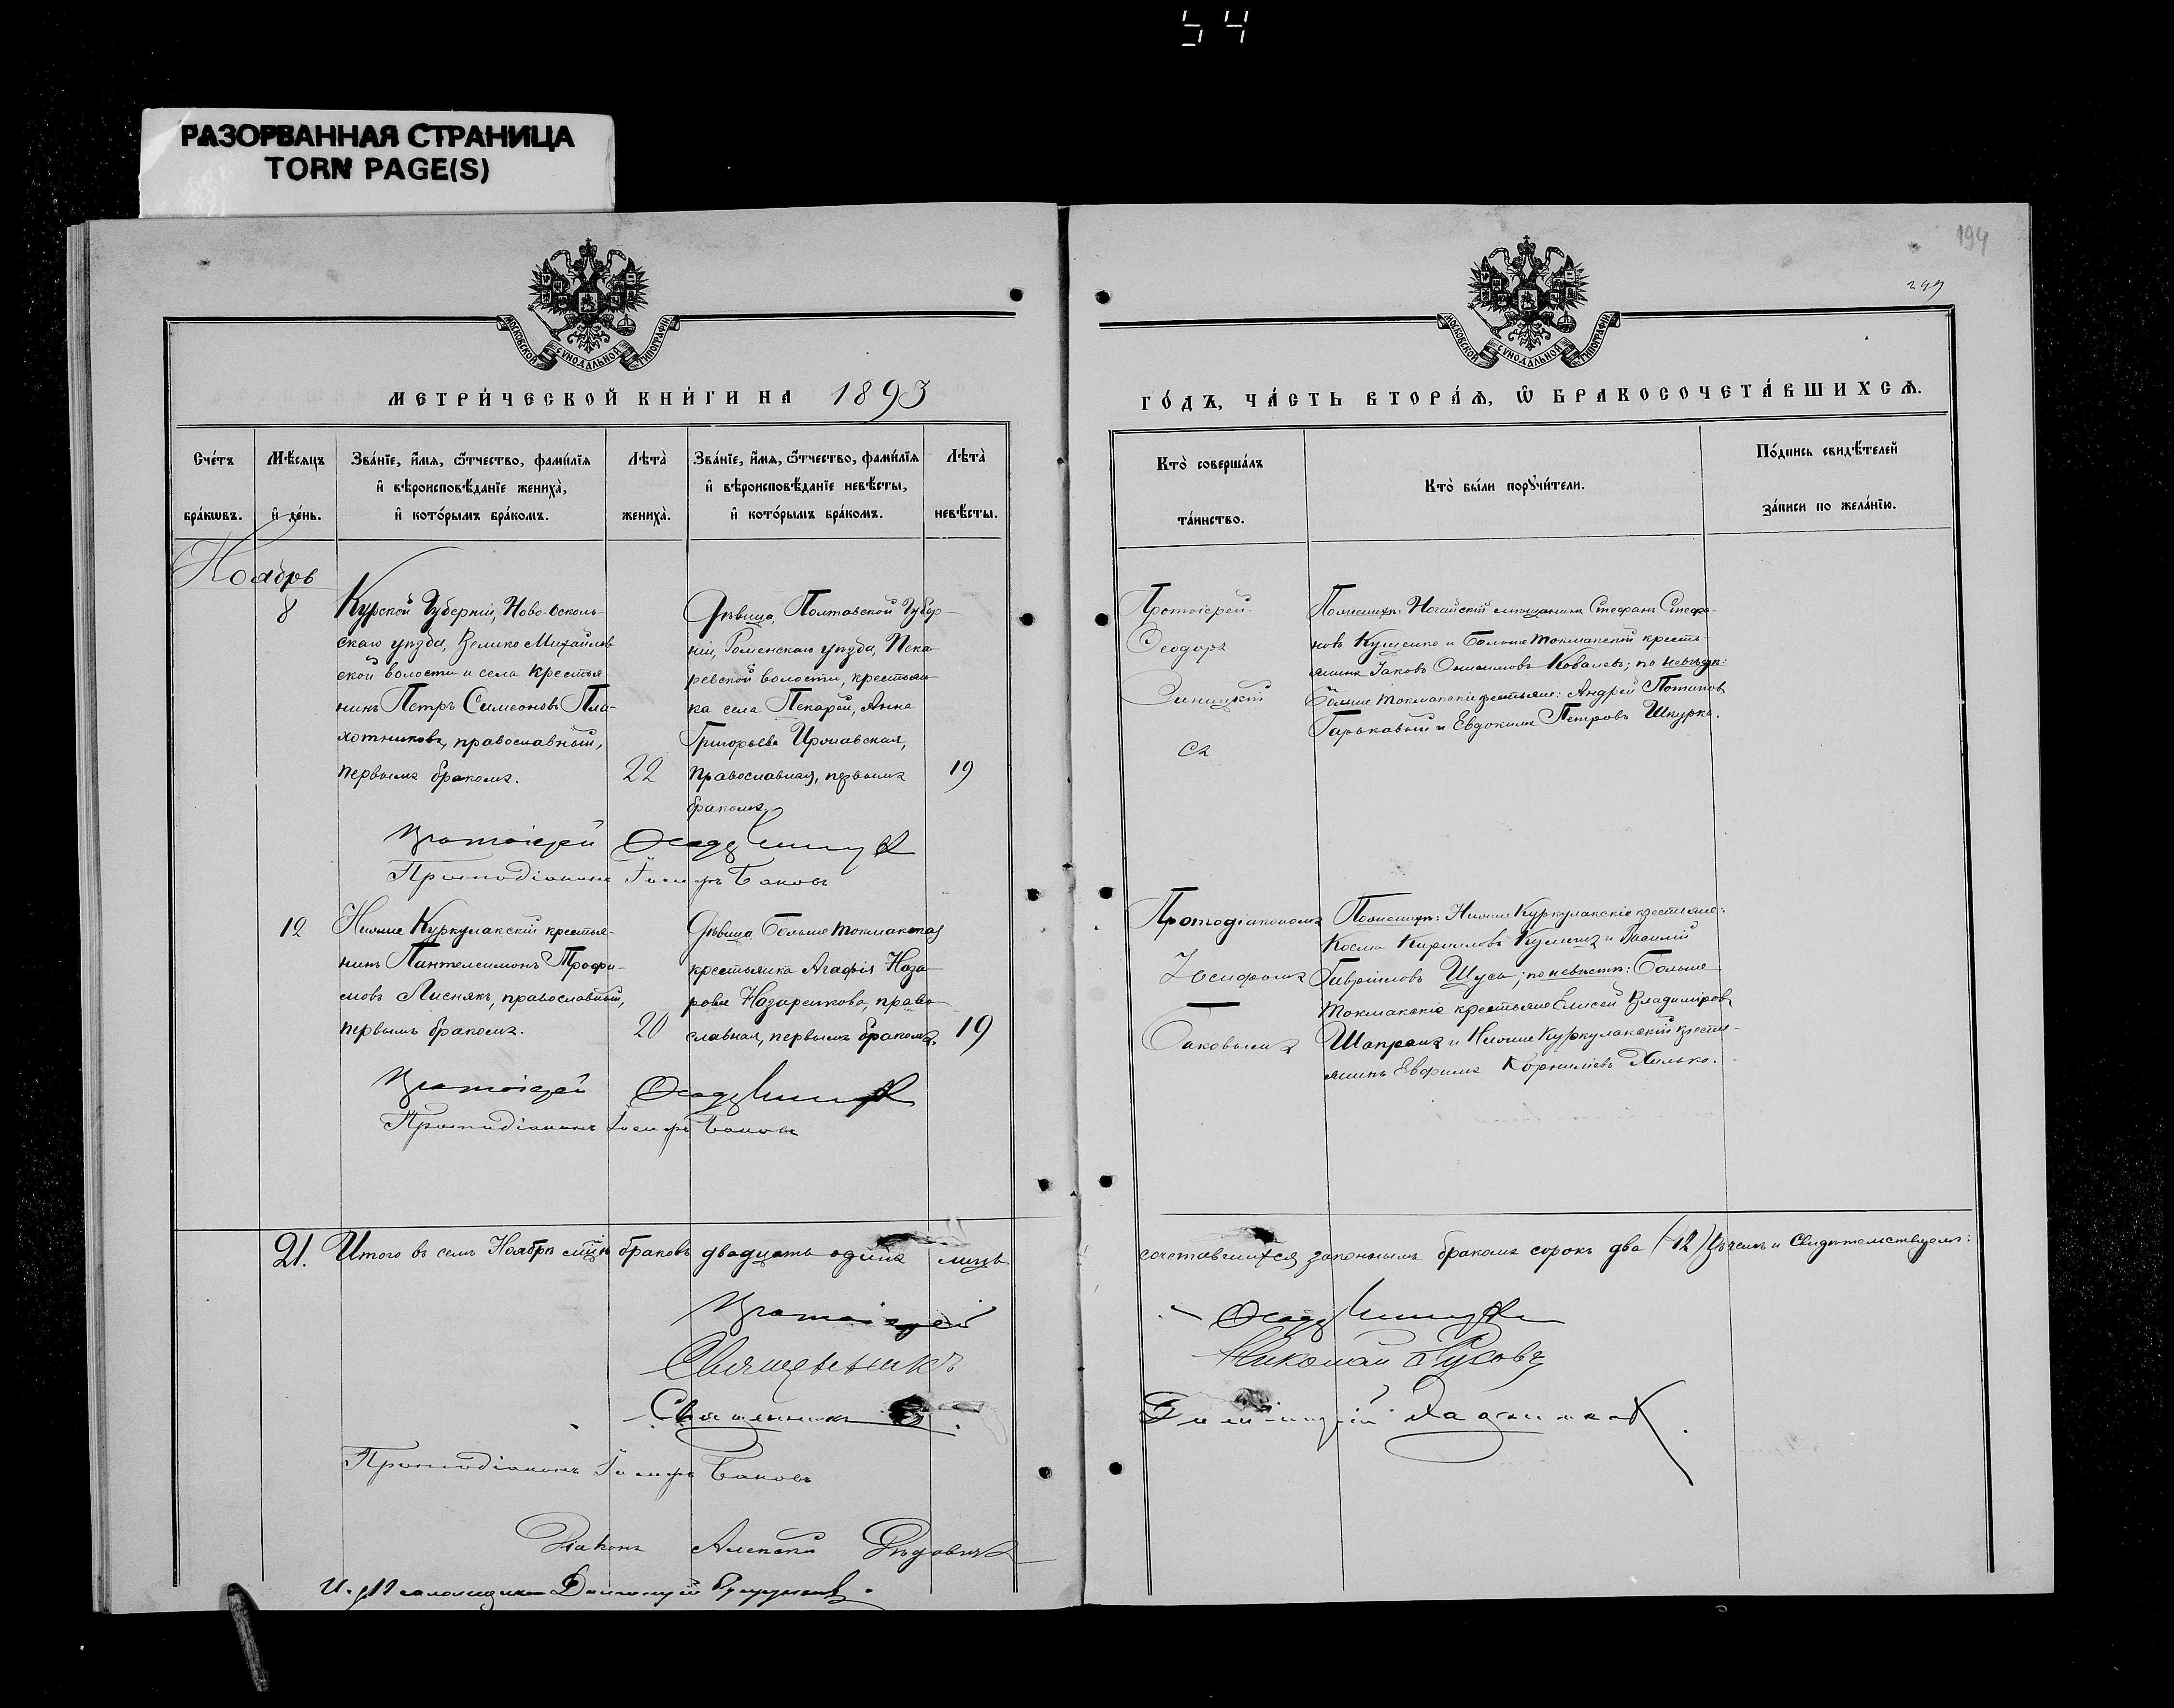 54
РАЗОРВАННАЯ СТРАНИЦА
TORN PAGE(S)
194
МОСКОВСКОЙ СУНОДАЛЬНОЙ ТИПОГРАФІИ
МОСКОВСКОЙ СУНОДАЛЬНОЙ ТИПОГРАФІИ
МЕТРИ́ЧЕСКОЙ КНИ́ГИ НА 1893
ГО́ДЪ, ЧА́СТЬ ВТОРА́Ѧ, Ѿ БРАКОСОЧЕТА́ВШИХСѦ.
Сче́тъ бра́кѡвъ.
Мѣ́сѧцъ и҆ де́нь.
Зва́нїе, и҆́мѧ, ѻ҆́тчество, фами́лїѧ
и҆ вѣроисповѣ́данїе жениха̀,
и҆ кото́рымъ бра́комъ.
Лѣта̀ жениха̀.
Зва́нїе, и҆́мѧ, ѻ҆́тчество, фами́лїѧ
и҆ вѣроисповѣ́данїе невѣ́сты,
и҆ кото́рымъ бра́комъ.
Лѣта̀ невѣ́сты.
Кто̀ соверша́лъ
та́инство.
Кто̀ бы́ли порꙋчи́тели.
По́дпись свидѣ́телей
за́писи по жела́нїю.
Ноябрь
8
Курской Губерніи, Ново-Осколь-
скаго уѣзда, Велико Михайлов
ской волости и села крестья-
нинъ Петръ Симеоновъ Пла-
хотниковъ, православный,
первымъ бракомъ.
22
Дѣвица, Полтавской Губер-
ніи, Роменскаго уѣзда, Пека-
ревской волости, крестьян-
ка села Пекарей, Анна
Григорьева
православная, первымъ
бракомъ.
19
Протоіерей
Ѳеодоръ
Синицкій
съ
По женихѣ: Ногайскій мѣщанинъ Стефанъ Стефа-
новъ и Больше Токмакскій кресть-
янинъ Іаковъ Онисимовъ Ковалевъ; по невѣстѣ:
Больше Токмакскіе крестьяне: Андрей Потапов
Гарькавый и Евдокимъ Петровъ Шкурко.
Протоіерей Ѳеодоръ Синицкій
Протодіаконъ Іосифъ Баковъ
12
Нижне Куркулакскій крестья-
нинъ Пантелеимонъ Трофи-
мовъ Лиснякъ, православный,
первымъ бракомъ.
20
Дѣвица Больше Токмакская
крестьянка Агафія Наза-
рова Назаренкова, право-
славная, первымъ бракомъ.
19
Протодіакономъ
Іосифомъ
Баковымъ
По женихѣ: Нижне Куркулакскіе крестьяне:
Косма Кирилловъ и Василій
Гавріиловъ Шусь; по невѣстѣ: Больше
Токмакскіе крестьяне Елисей Владиміров
Шапранъ и Нижне Куркулакскій кресть-
янинъ Евфимъ Корниліевъ Хилько.
Протоіерей Ѳеодоръ Синицкій
Протодіаконъ Іосифъ Баковъ
21. Итого въ семъ Ноябрѣ мцѣ браковъ двадцать одинъ лицъ
сочетавшихся законнымъ бракомъ сорокъ два (42) Въ чемъ и Свидѣтельствуемъ:
Протоіерей Ѳеодоръ Синицкій
Священникъ Николай
Священникъ
Протодіаконъ Іосифъ Баковъ
Діаконъ Алексѣй
И. д. Псаломщика